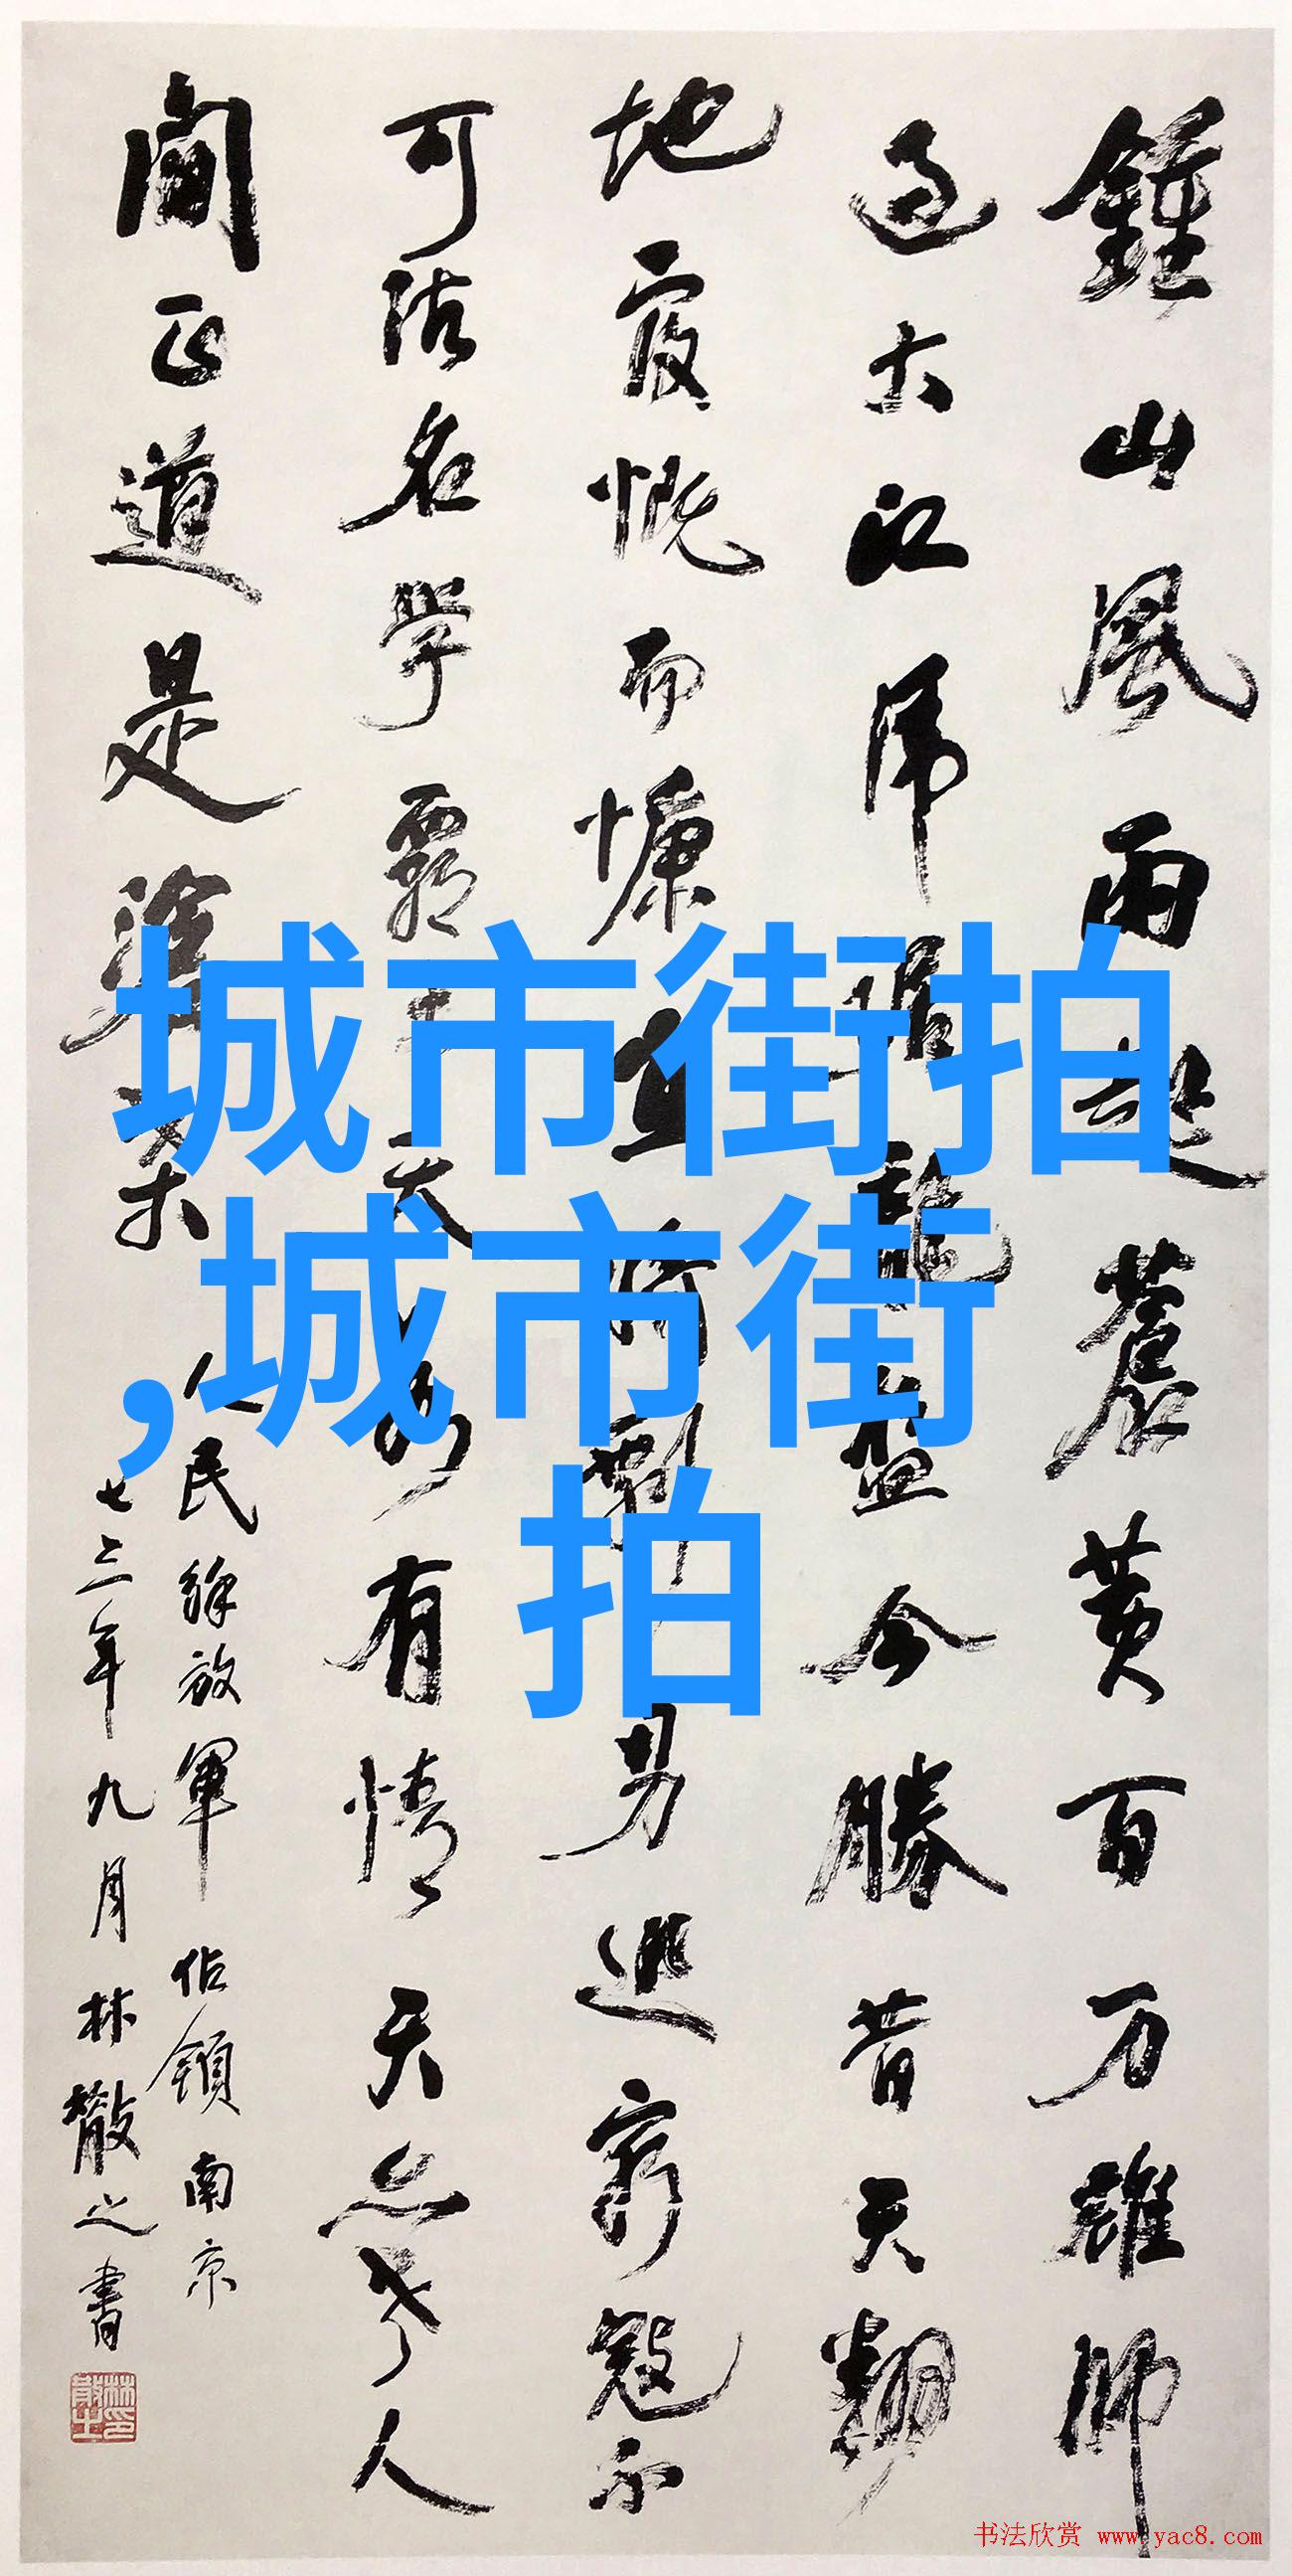 鍾山風雨起蒼黄百万雄師
过大江虎踞龍盤今勝昔天翻
地覆慨而慷宜將剩勇追窮寇不
可沽名學霸王天若有情天亦老人
間正道是滄桑 人民解放軍佔領南京
七三年九月林散之書
林散之印
城市街拍
,城市街
拍
书法欣赏 www.yac8.com